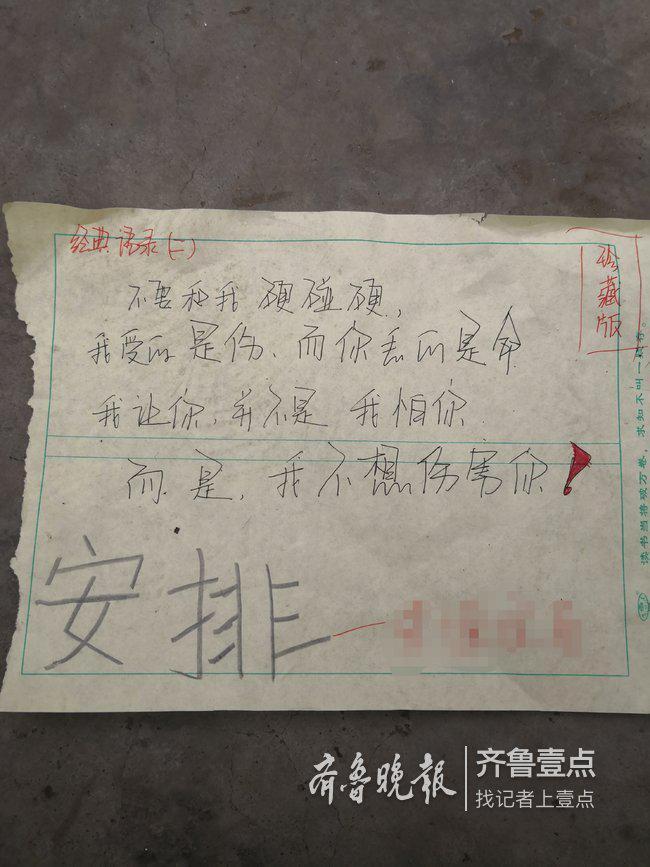 经典语录(二)
珍藏版
不要和我硬碰硬,
我受的是伤、而你丢的是命
我让你,并不是我怕你
而是,我不想伤害你!
安排
读书当将破万卷,求知不叫一疑存。
齐鲁晚报
齐鲁壹点
找记者上壹点